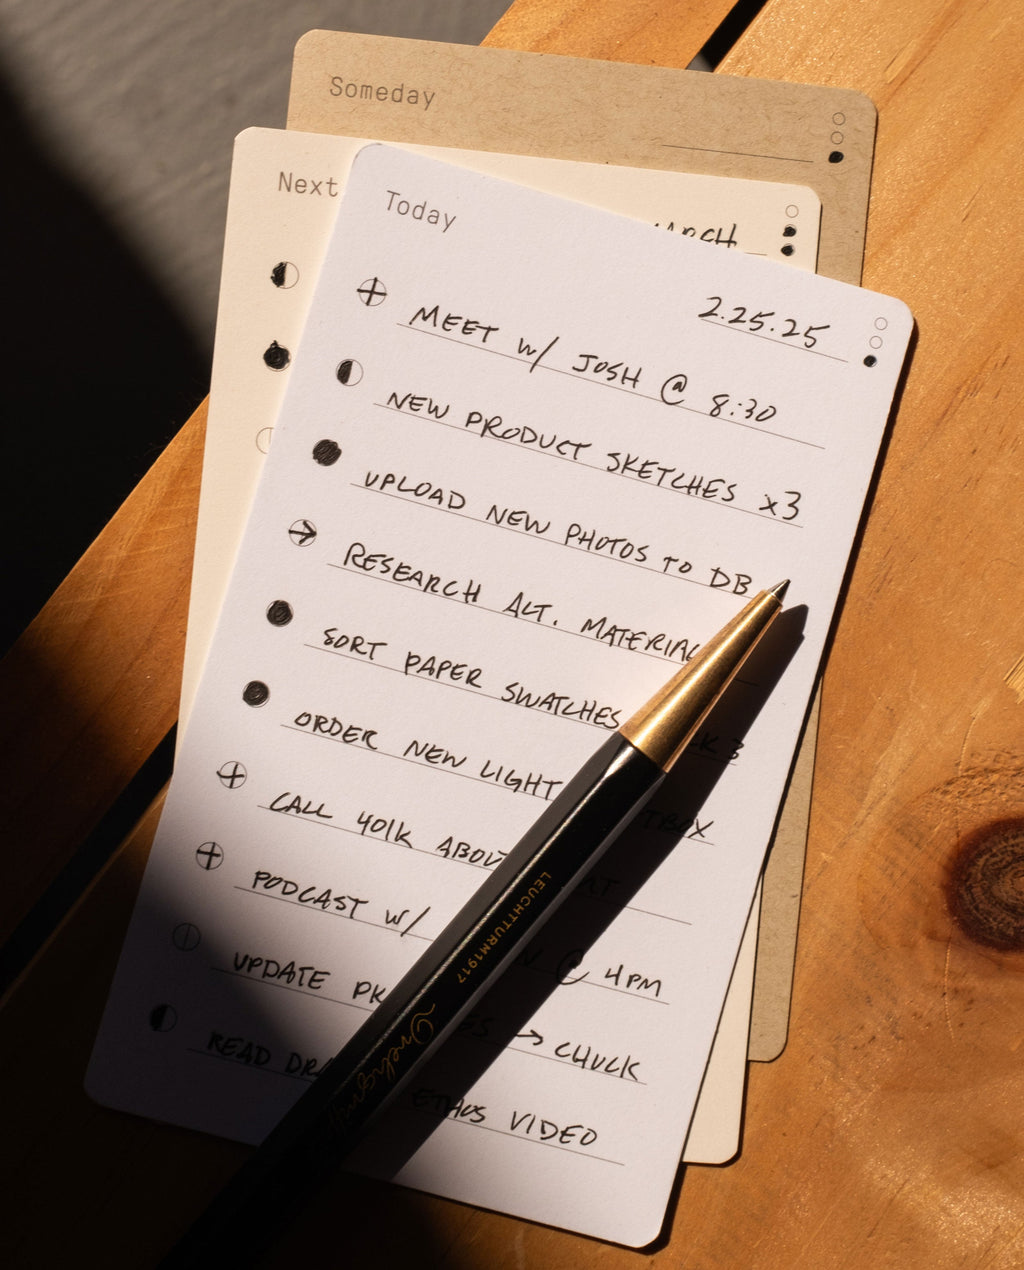 Someday
Next
Today
2.25.25
MEET w/ JOSH @ 8:30
NEW PRODUCT SKETCHES x3
UPLOAD NEW PHOTOS TO DB
RESEARCH ALT.
SORT PAPER SWATCHES
ORDER NEW LIGHT
CALL 401K
PODCAST W/ @ 4PM
UPDATE → CHUCK
READ ETHOS VIDEO
LEUCHTTURM1917